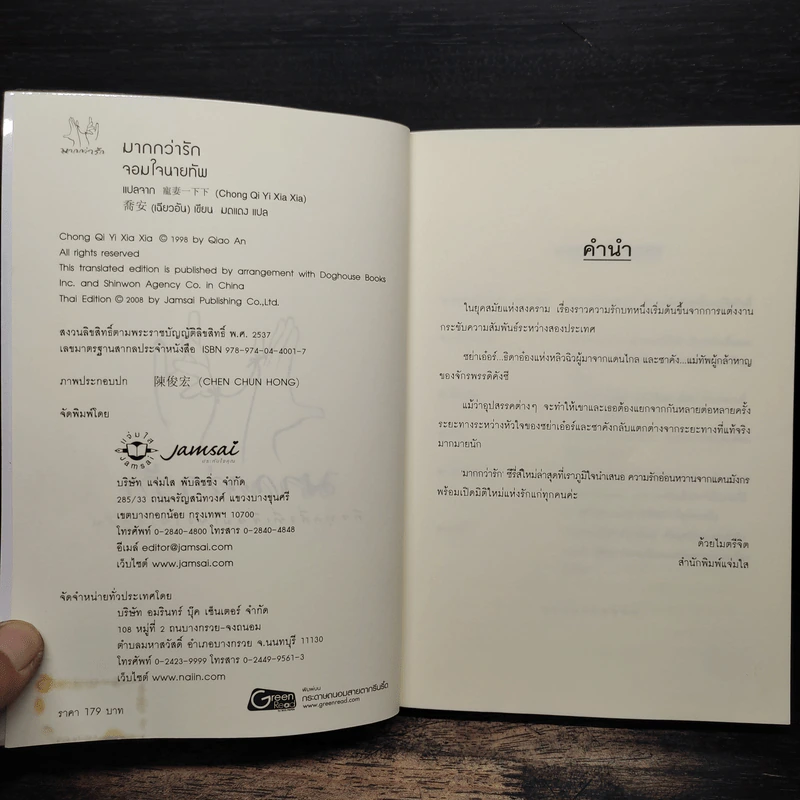 มากกว่ารัก
มากกว่ารัก
จอมใจนายทัพ
แปลจาก 寵妻一下下 (Chong Qi Yi Xia Xia)
喬安 (เฉียวอัน) เขียน มดแดง แปล
Chong Qi Yi Xia Xia © 1998 by Qiao An
All rights reserved
This translated edition is published by arrangement with Doghouse Books
Inc. and Shinwon Agency Co. in China
Thai Edition © 2008 by Jamsai Publishing Co.,Ltd.
สงวนลิขสิทธิ์ตามพระราชบัญญัติลิขสิทธิ์ พ.ศ. 2537
เลขมาตรฐานสากลประจำหนังสือ ISBN 978-974-04-4001-7
ภาพประกอบปก 陳俊宏 (CHEN CHUN HONG)
จัดพิมพ์โดย
แจ่มใส
JAMSAI
Jamsai
บริษัท แจ่มใส พับลิชชิ่ง จำกัด
285/33 ถนนจรัญสนิทวงศ์ แขวงบางขุนศรี
เขตบางกอกน้อย กรุงเทพฯ 10700
โทรศัพท์ 0-2840-4800 โทรสาร 0-2840-4848
อีเมล์ editor@jamsai.com
เว็บไซต์ www.jamsai.com
จัดจำหน่ายทั่วประเทศโดย
บริษัท อมรินทร์ บุ๊ค เซ็นเตอร์ จำกัด
108 หมู่ที่ 2 ถนบางกรวย-จงถนอม
ตำบลมหาสวัสดิ์ อำเภอบางกรวย จ.นนทบุรี 11130
โทรศัพท์ 0-2423-9999 โทรสาร 0-2449-9561-3
เว็บไซต์ www.naiin.com
Green Read
พิมพ์บน
กระดาษถนอมสายตากรีนรี้ด
www.greenread.com
ราคา 179 บาท
คำนำ
ในยุคสมัยแห่งสงคราม เรื่องราวความรักบทหนึ่งเริ่มต้นขึ้นจากการแต่งงาน
กระชับความสัมพันธ์ระหว่างสองประเทศ
ซย่าเอ๋อร์...ธิดาอ๋องแห่งหลิวฉิวผู้มาจากแดนไกล และซาคัง...แม่ทัพผู้กล้าหาญ
ของจักรพรรดิคังซี
แม้ว่าอุปสรรคต่างๆ จะทำให้เขาและเธอต้องแยกจากกันหลายต่อหลายครั้ง
ระยะทางระหว่างหัวใจของซย่าเอ๋อร์และซาคังกลับแตกต่างจากระยะทางที่แท้จริง
มากมายนัก
'มากกว่ารัก' ซีรี่ส์ใหม่ล่าสุดที่เราภูมิใจนำเสนอ ความรักอ่อนหวานจากแดนมังกร
พร้อมเปิดมิติใหม่แห่งรักแก่ทุกคนค่ะ
ด้วยไมตรีจิต
สำนักพิมพ์แจ่มใส